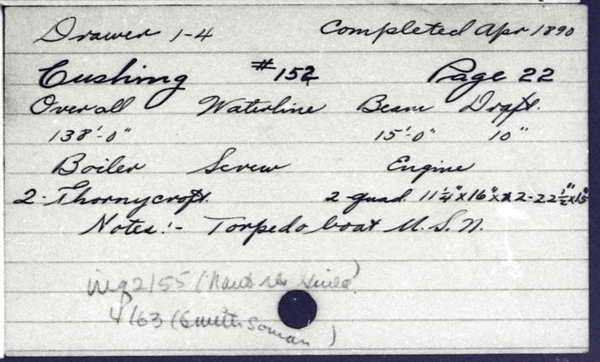 Drawer 1-4 Completed Apr 1890
Cushing #152 Page 22
Over all Waterline Beam Draft.
138'-0" 15'-0" 10"
Boiler Screw Engine
2-Thornycroft. 2 quad. 11¼"x16"x x2-22½"x15"
Notes:- Torpedo boat U.S.N.
neg 2155 (
4/63 (Smithsonian)